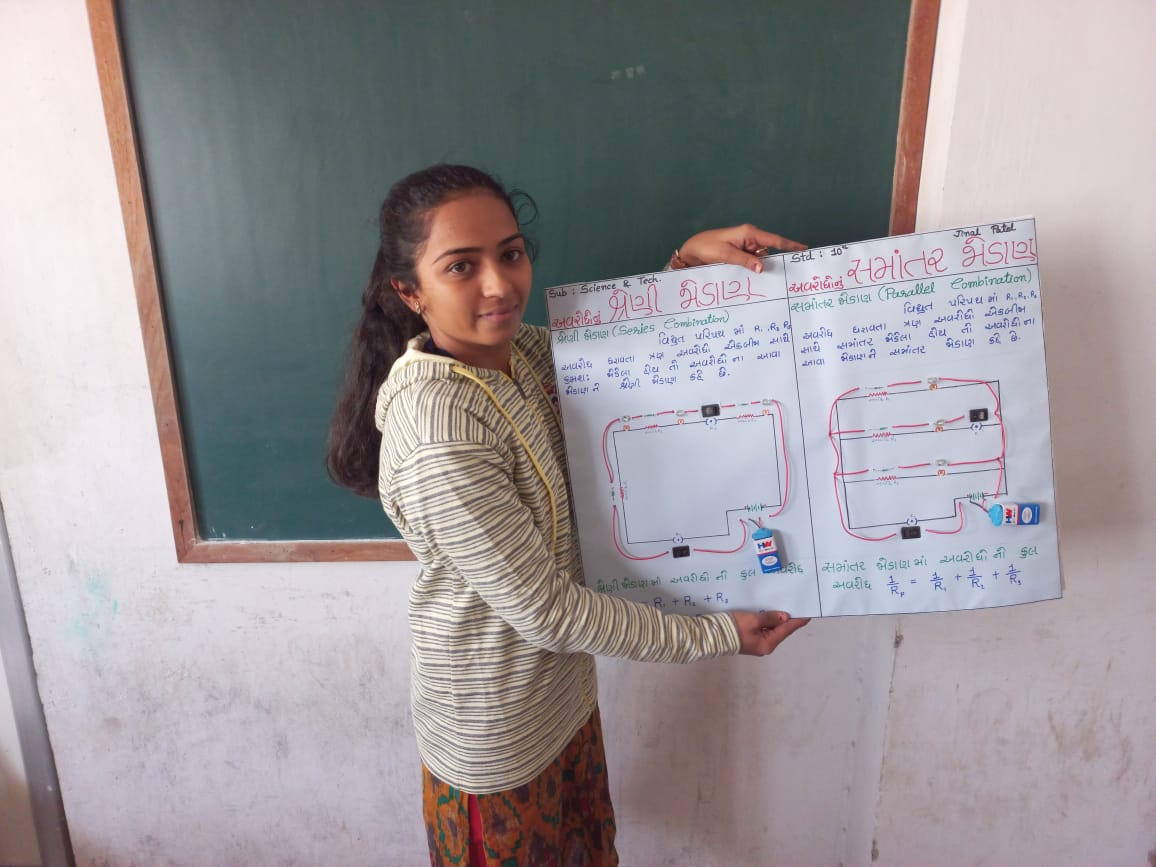 Sub : Science & Tech.
અવરોધોનું શ્રેણી જોડાણ
શ્રેણી જોડાણ (Series Combination)
વિદ્યુત પરિપથ માં R₁, R₂, R₃
અવરોધ ધરાવતા ત્રણ અવરોધો એકબીજા સાથે
ક્રમશઃ જોડેલા હોય તો અવરોધો ના આવા
જોડાણ ને શ્રેણી જોડાણ કહે છે.
શ્રેણી જોડાણ માં અવરોધો નો કુલ અવરોધ
= R₁ + R₂ + R₃
Std : 10th
Jinal Patel
અવરોધોનું સમાંતર જોડાણ
સમાંતર જોડાણ (Parallel Combination)
વિદ્યુત પરિપથ માં R₁, R₂, R₃
અવરોધ ધરાવતા ત્રણ અવરોધો એકબીજા
સાથે સમાંતર જોડેલા હોય તો અવરોધો ના
આવા જોડાણ ને સમાંતર જોડાણ કહે છે.
HW
HW
સમાંતર જોડાણ માં અવરોધો નો કુલ
અવરોધ 1/Rₚ = 1/R₁ + 1/R₂ + 1/R₃